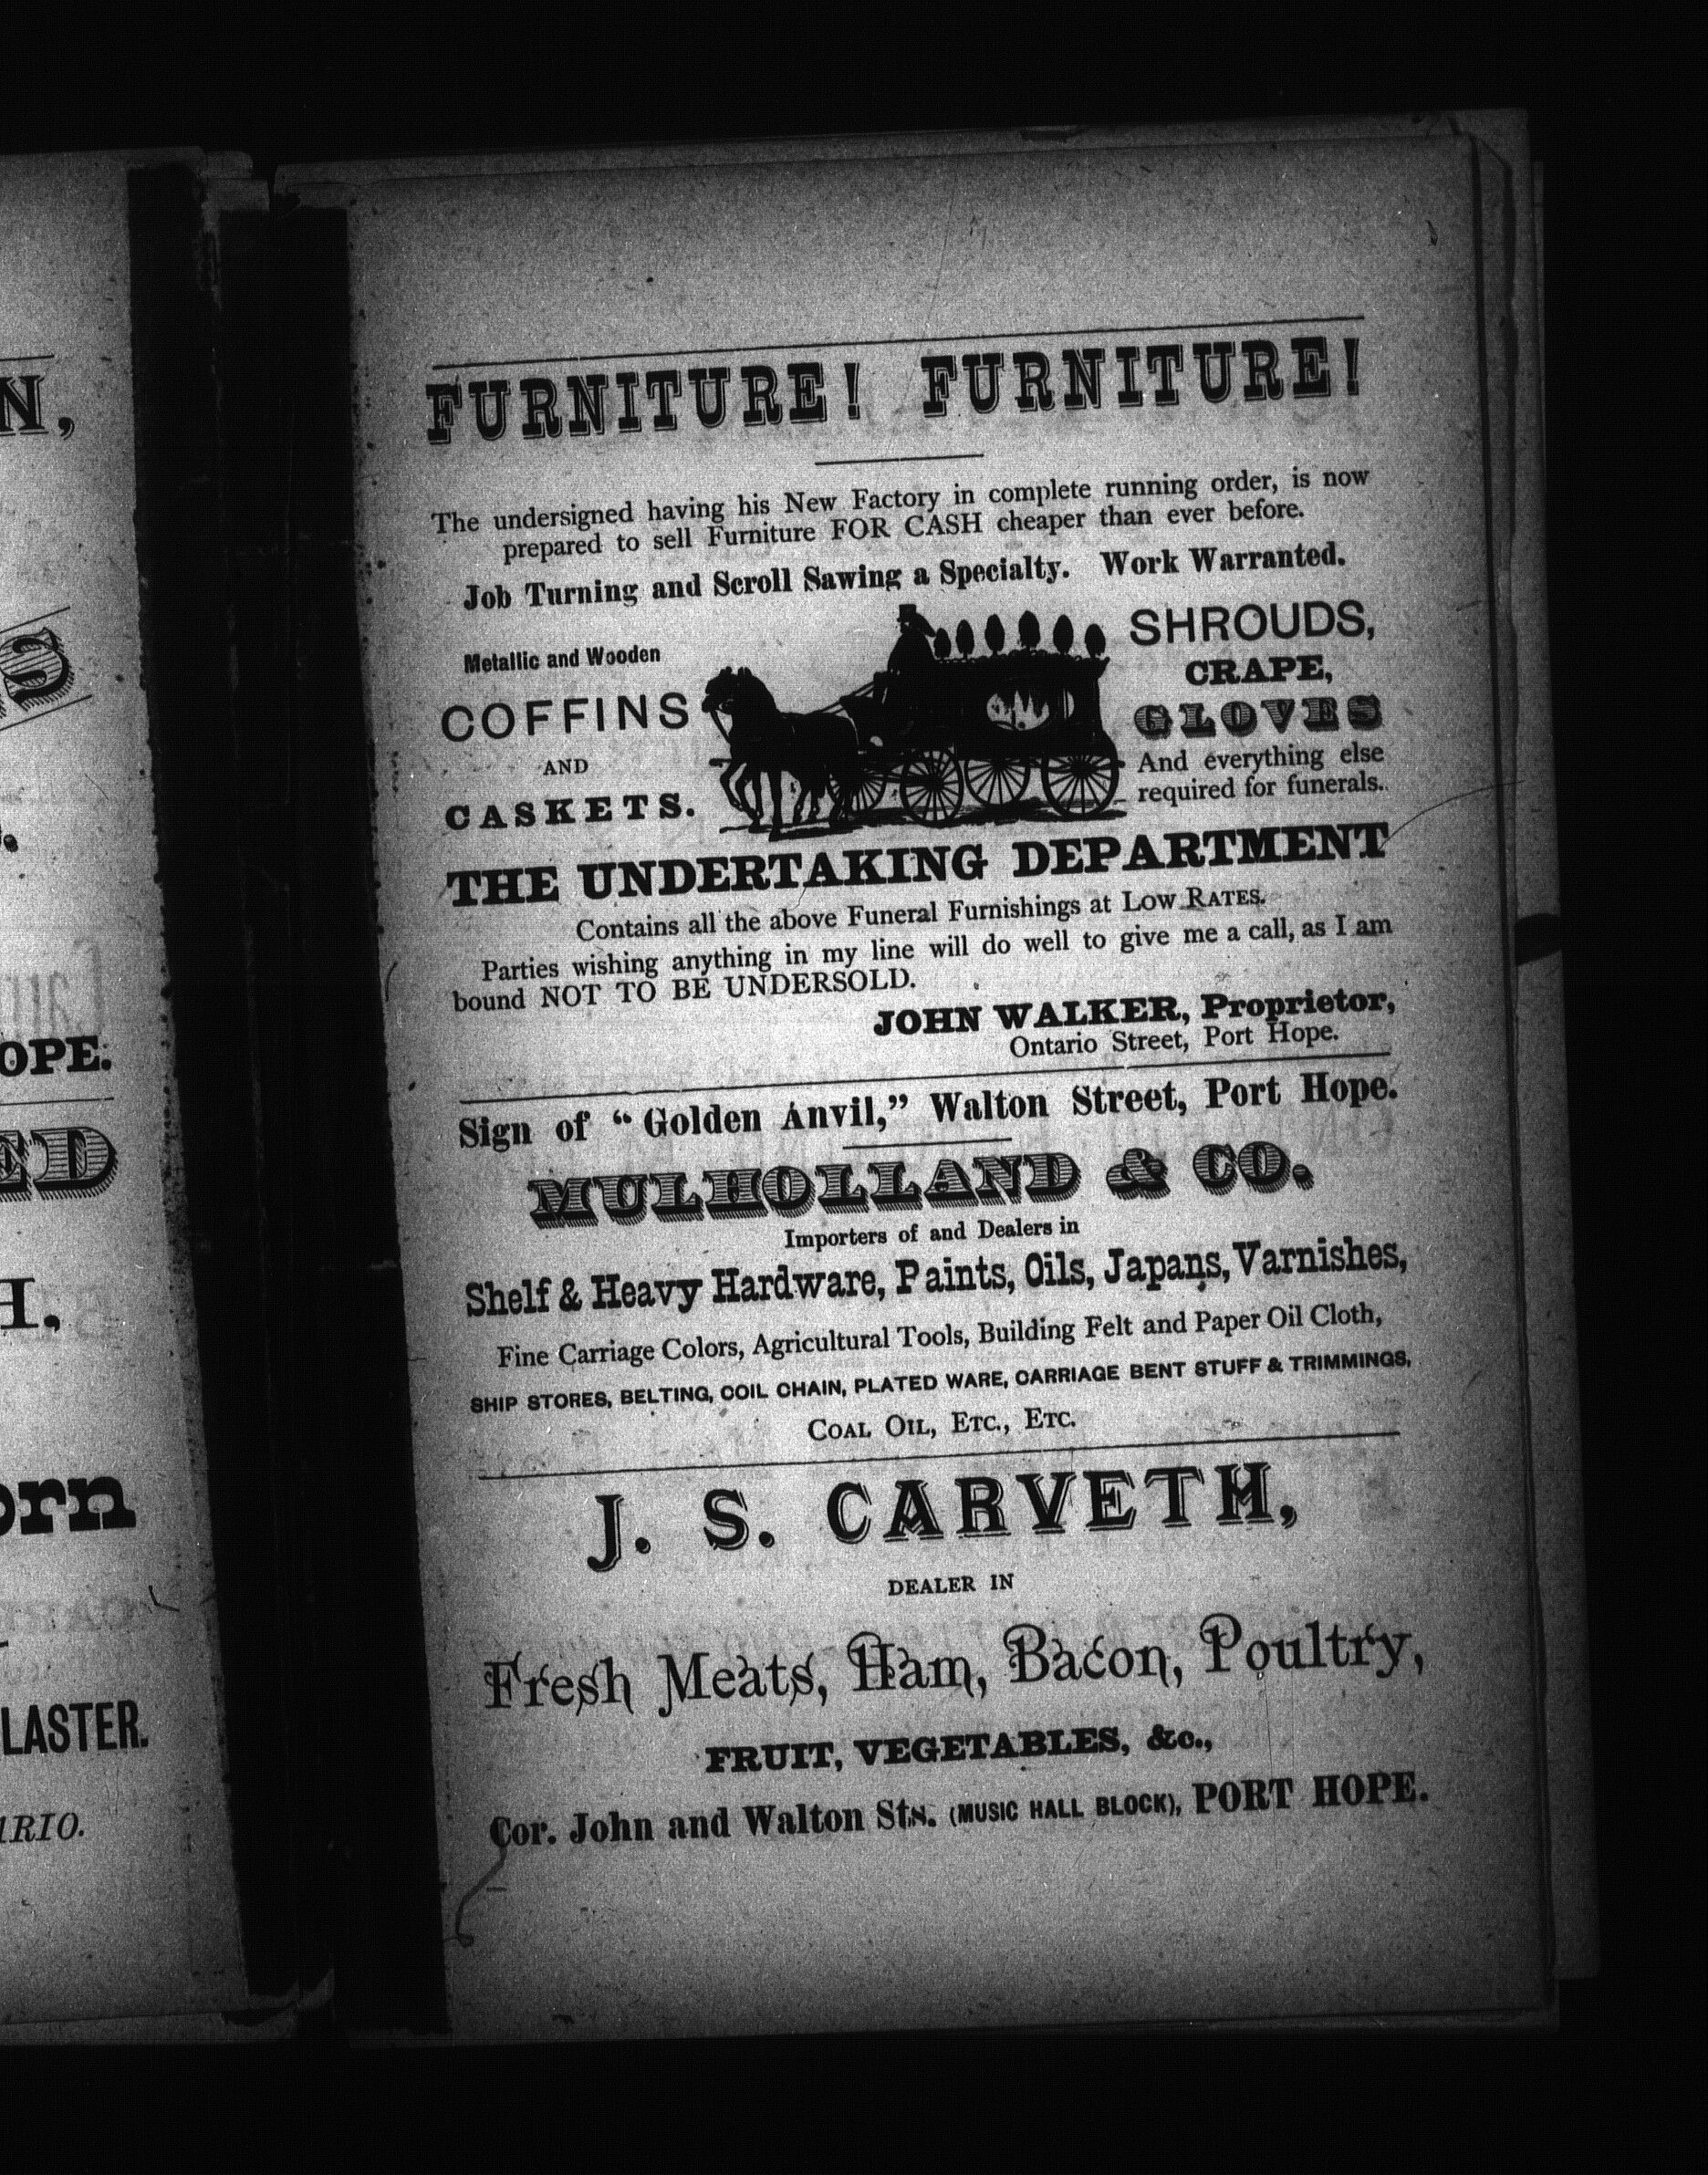 N,
S
OPE.
ED
H,
orn
LASTER.
ARIO.
FURNITURE! FURNITURE!
The undersigned having his New Factory in complete running order, is now
prepared to sell Furniture FOR CASH cheaper than ever before.
Job Turning and Scroll Sawing a Specialty. Work Warranted.
Metallic and Wooden
COFFINS
AND
CASKETS.
SHROUDS,
CRAPE,
GLOVES
And everything else
required for funerals.
THE UNDERTAKING DEPARTMENT
Contains all the above Funeral Furnishings at LOW RATES.
Parties wishing anything in my line will do well to give me a call, as I am
bound NOT TO BE UNDERSOLD.
JOHN WALKER, Proprietor,
Ontario Street, Port Hope.
Sign of "Golden Anvil," Walton Street, Port Hope.
MULHOLLAND & CO.
Importers of and Dealers in
Shelf & Heavy Hardware, Paints, Oils, Japans, Varnishes,
Fine Carriage Colors, Agricultural Tools, Building Felt and Paper Oil Cloth,
SHIP STORES, BELTING, COIL CHAIN, PLATED WARE, CARRIAGE BENT STUFF & TRIMMINGS,
COAL OIL, ETC., ETC.
J. S. CARVETH,
DEALER IN
Fresh Meats, Ham, Bacon, Poultry,
FRUIT, VEGETABLES, &c.,
Cor. John and Walton Sts. (MUSIC HALL BLOCK), PORT HOPE.